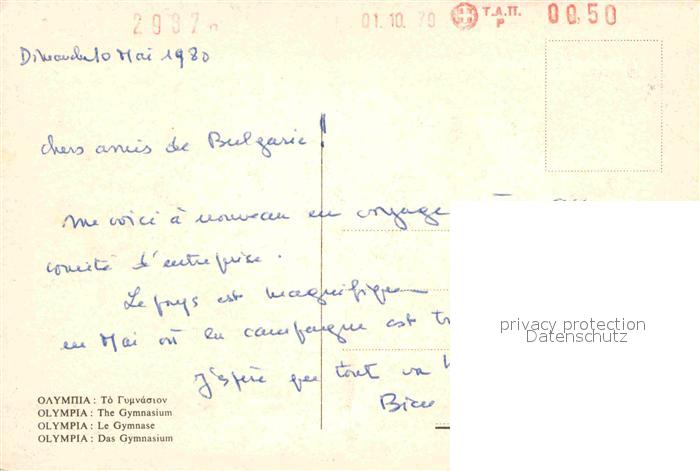 2937
01.10.79 Τ.Α.Π. P 00.50
Dimanche 10 Mai 1980
chers amis de Bulgarie !
me voici à nouveau en voyage
comité d'entreprise.
Le pays est magnifique
en Mai où la campagne est
J'espère que tout va
privacy protection
Datenschutz
ΟΛΥΜΠΙΑ : Τὸ Γυμνάσιον
OLYMPIA : The Gymnasium
OLYMPIA : Le Gymnase
OLYMPIA : Das Gymnasium